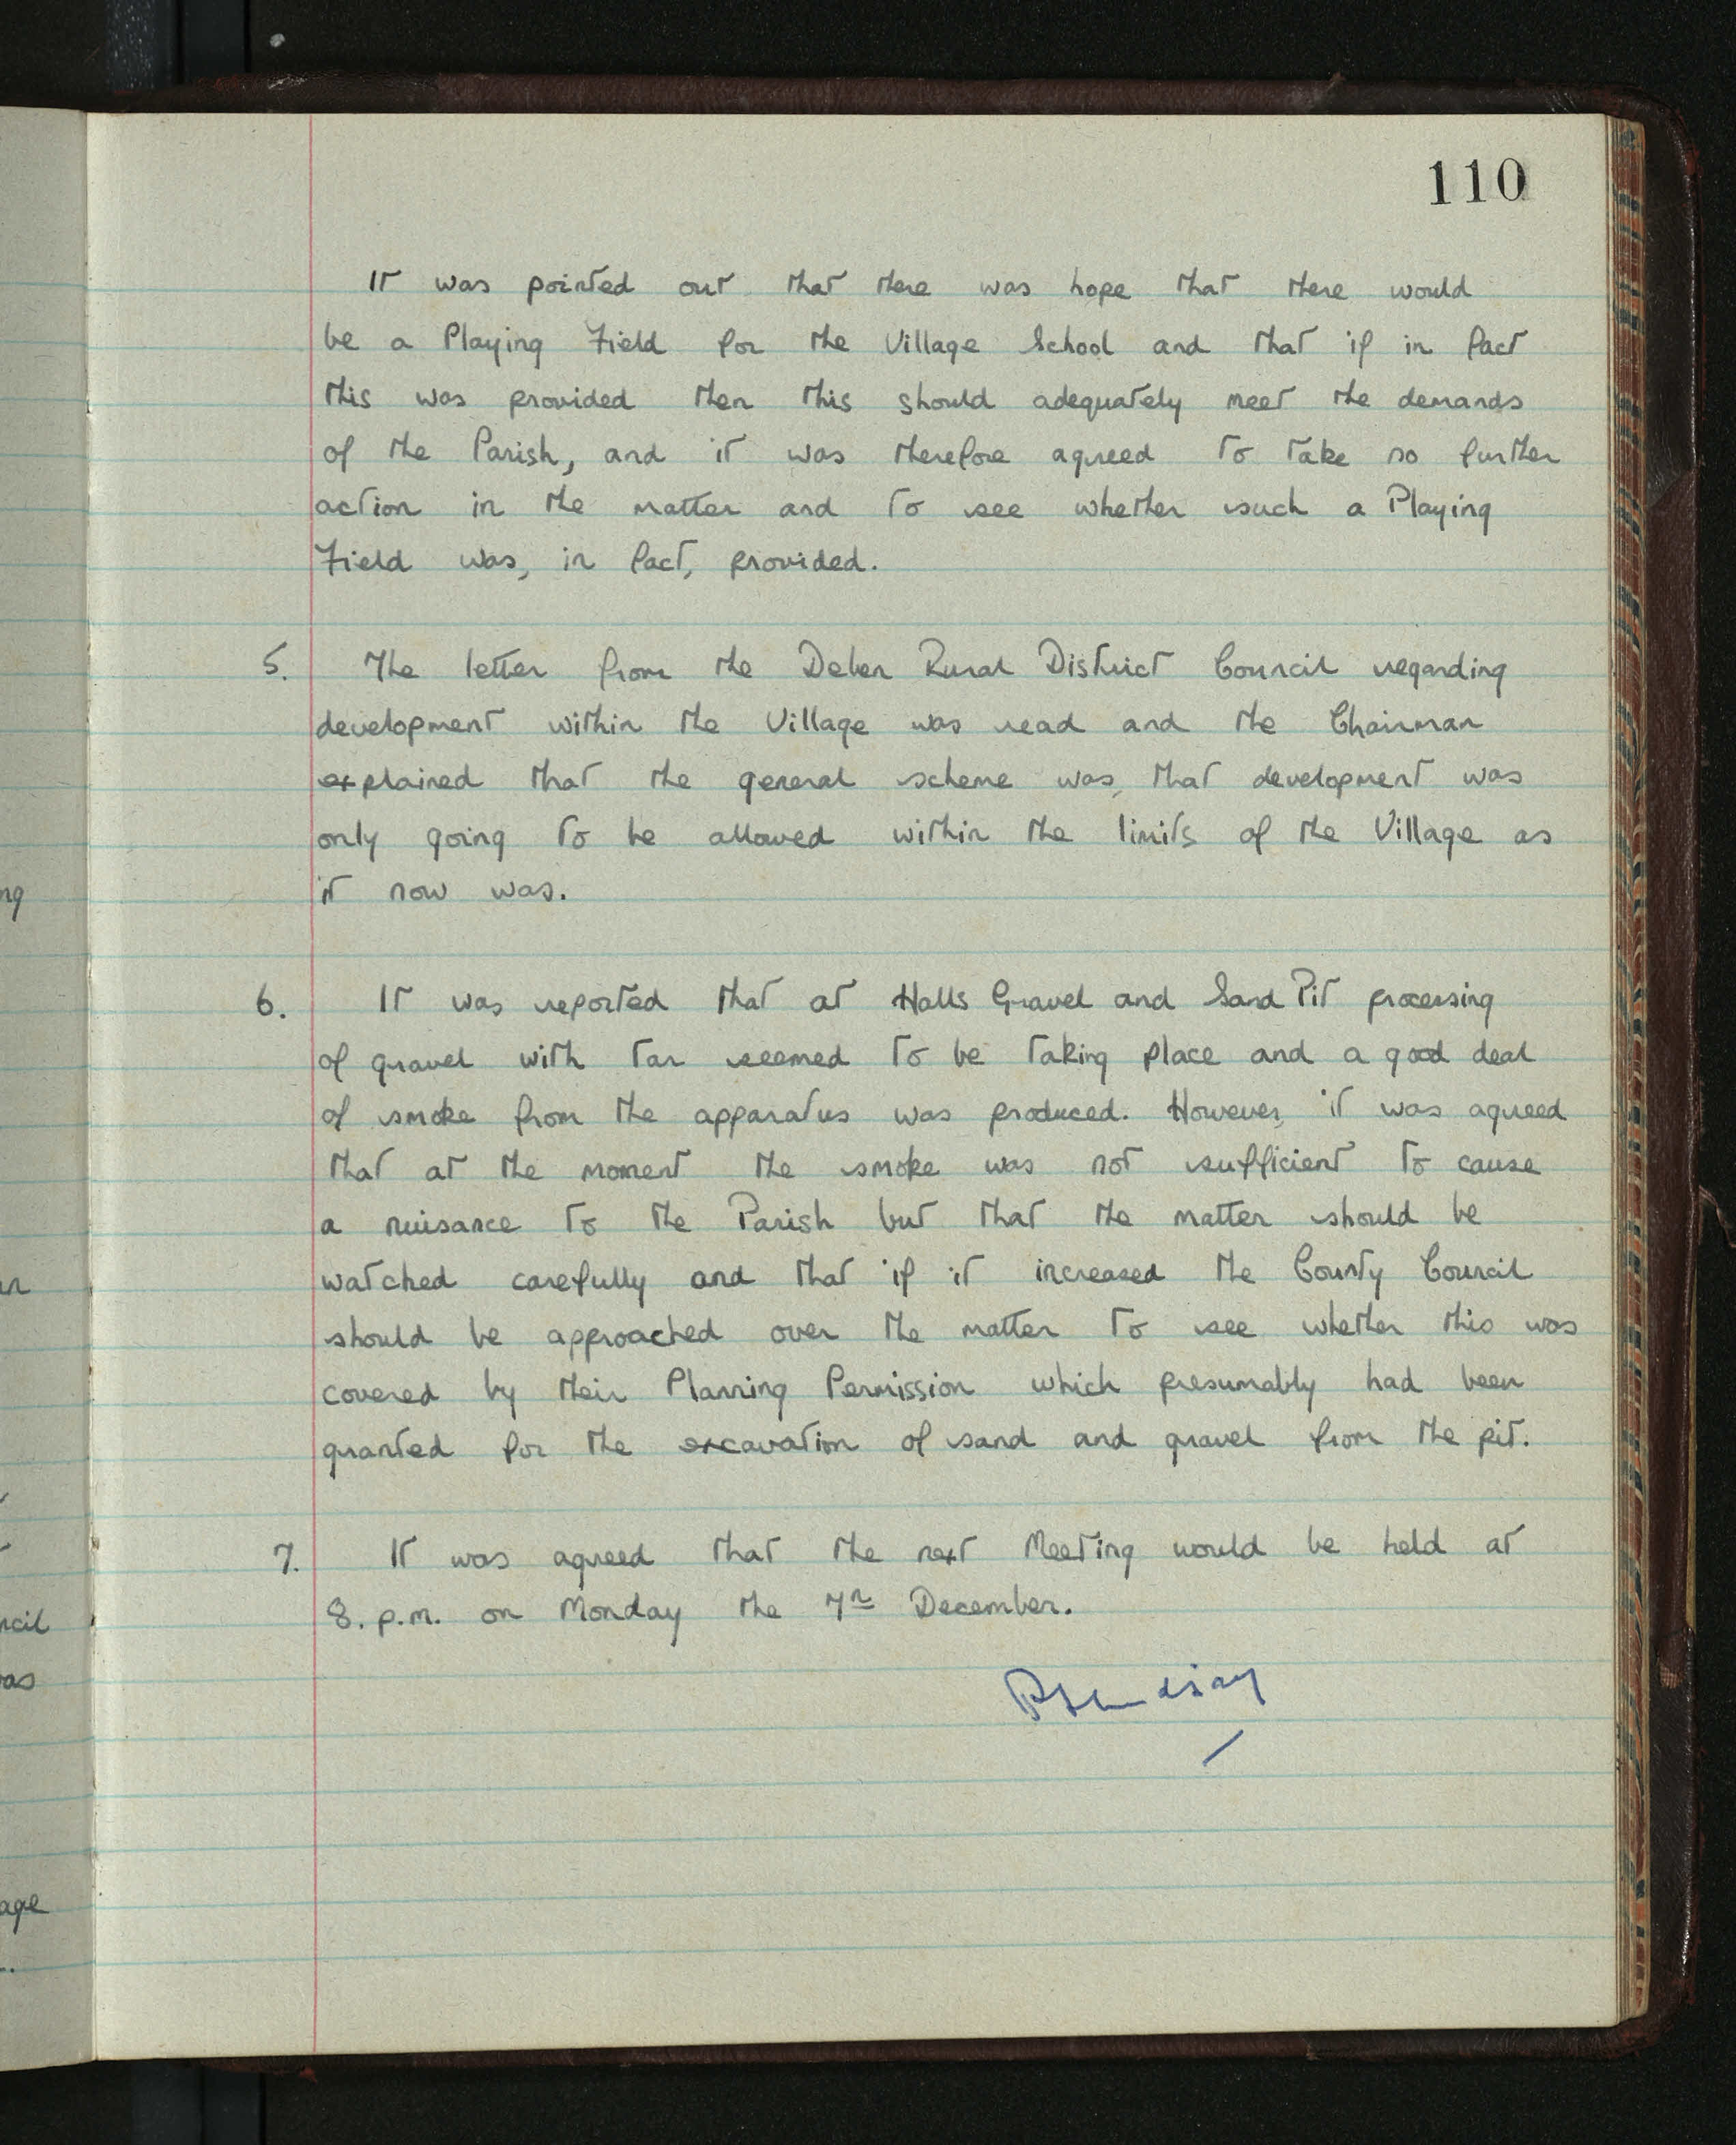 110
It was pointed out that there was hope that there would
be a Playing Field for the Village School and that if in fact
this was provided then this should adequately meet the demands
of the Parish, and it was therefore agreed to take no further
action in the matter and to see whether such a Playing
Field was, in fact, provided.
5. The letter from the Deben Rural District Council regarding
development within the Village was read and the Chairman
explained that the general scheme was, that development was
only going to be allowed within the limits of the Village as
it now was.
6. It was reported that at Halls Gravel and Sand Pit processing
of gravel with tar seemed to be taking place and a good deal
of smoke from the apparatus was produced. However, it was agreed
that at the moment the smoke was not sufficient to cause
a nuisance to the Parish but that the matter should be
watched carefully and that if it increased the County Council
should be approached over the matter to see whether this was
covered by their Planning Permission which presumably had been
granted for the excavation of sand and gravel from the pit.
7. It was agreed that the next Meeting would be held at
8. p.m. on Monday the 7th December.